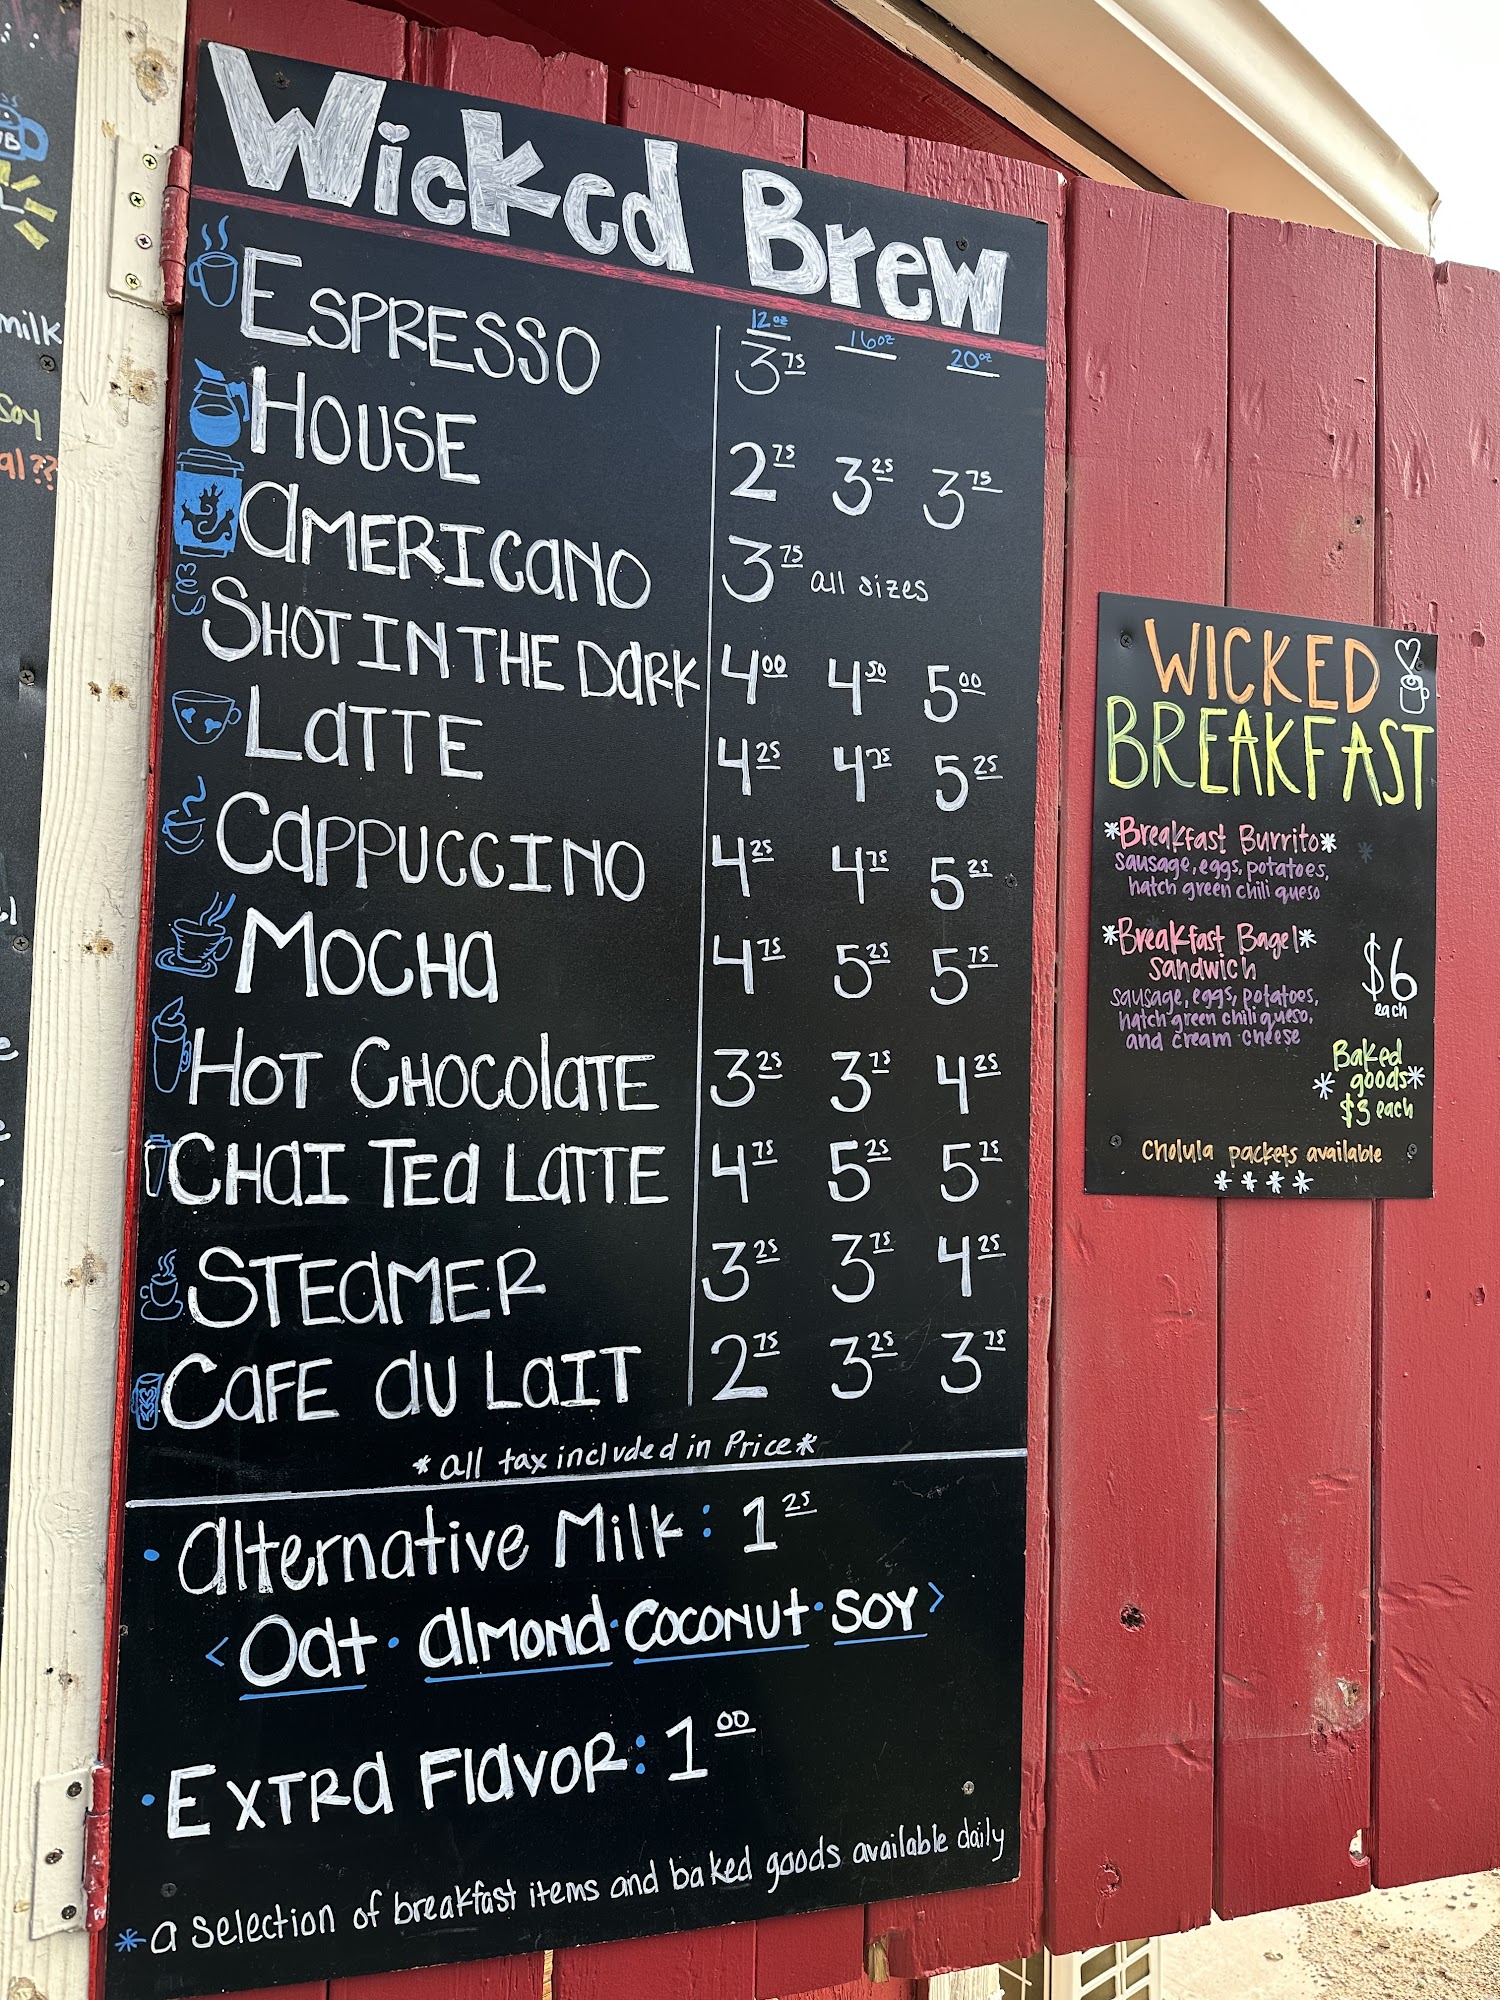 milk
soy
al??
Wicked Brew
12oz 16oz 20oz
ESPRESSO 3 75
HOUSE 2 75 3 25 3 75
AMERICANO 3 75 all sizes
SHOT IN THE DARK 4 00 4 50 5 00
LATTE 4 25 4 75 5 25
CAPPUCCINO 4 25 4 75 5 25
MOCHA 4 75 5 25 5 75
HOT CHOCOLATE 3 25 3 75 4 25
CHAI TEA LATTE 4 75 5 25 5 75
STEAMER 3 25 3 75 4 25
CAFE DU LAIT 2 75 3 25 3 75
*all tax included in Price*
• Alternative Milk: 1 25
<Oat • almond • coconut • soy>
• EXTRA FLAVOR: 1 00
*a selection of breakfast items and baked goods available daily
WICKED
BREAKFAST
*Breakfast Burrito*
sausage, eggs, potatoes,
hatch green chili queso
*Breakfast Bagel*
sandwich
sausage, eggs, potatoes,
hatch green chili queso,
and cream cheese
$6
each
Baked
*goods*
$3 each
Cholula packets available
****